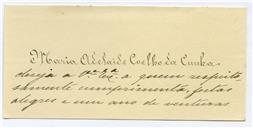 Maria Adelaide Coelho da Cunha
deseja a V.ª Ex.ª a quem respeito-
samente cumprimenta, festas
alegres e um ano de venturas